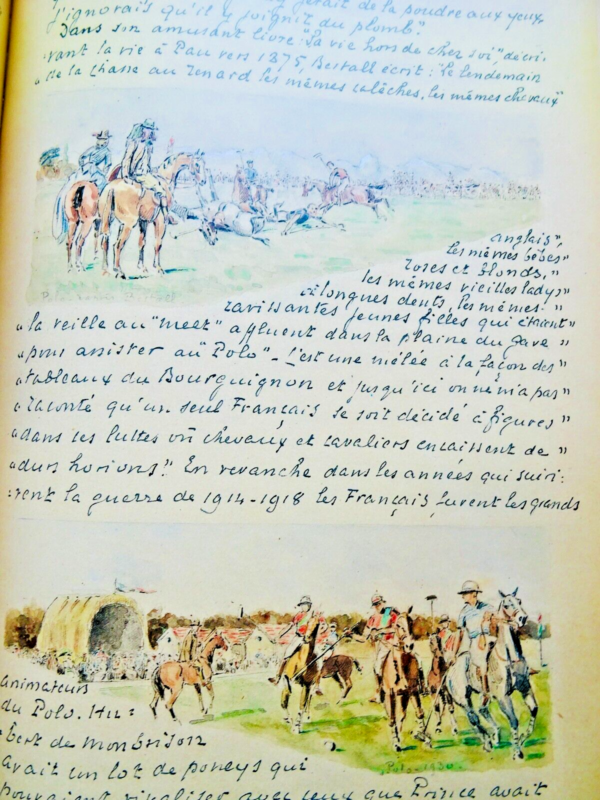 jetait de la poudre aux yeux
j'ignorais qu'il y joignit du plomb".
Dans son amusant livre "la vie hors de chez soi", décri-
vant la vie à Pau vers 1875, Bertall écrit : "le lendemain
"de la chasse au renard les mêmes calèches, les mêmes chevaux"
anglais",
les mêmes bébés"
roses et blonds,"
les mêmes vieilles ladys"
à longues dents, les mêmes "
ravissantes jeunes filles qui étaient"
"la veille au "meet" affluent dans la plaine du gave "
"pour assister au "Polo" - C'est une mêlée à la façon des"
"tableaux du Bourguignon et jusqu'ici on ne m'a pas"
"raconté qu'un seul Français se soit décidé à figurer"
"dans ces luttes où chevaux et cavaliers encaissent de "
"durs horions". En revanche dans les années qui suivi:
:rent la guerre de 1914-1918 les Français furent les grands
animateurs
du Polo. Hu:
:bert de Monbrison
avait un lot de poneys qui
pouvaient rivaliser avec ceux que Prince avait
Polo - 1930 -